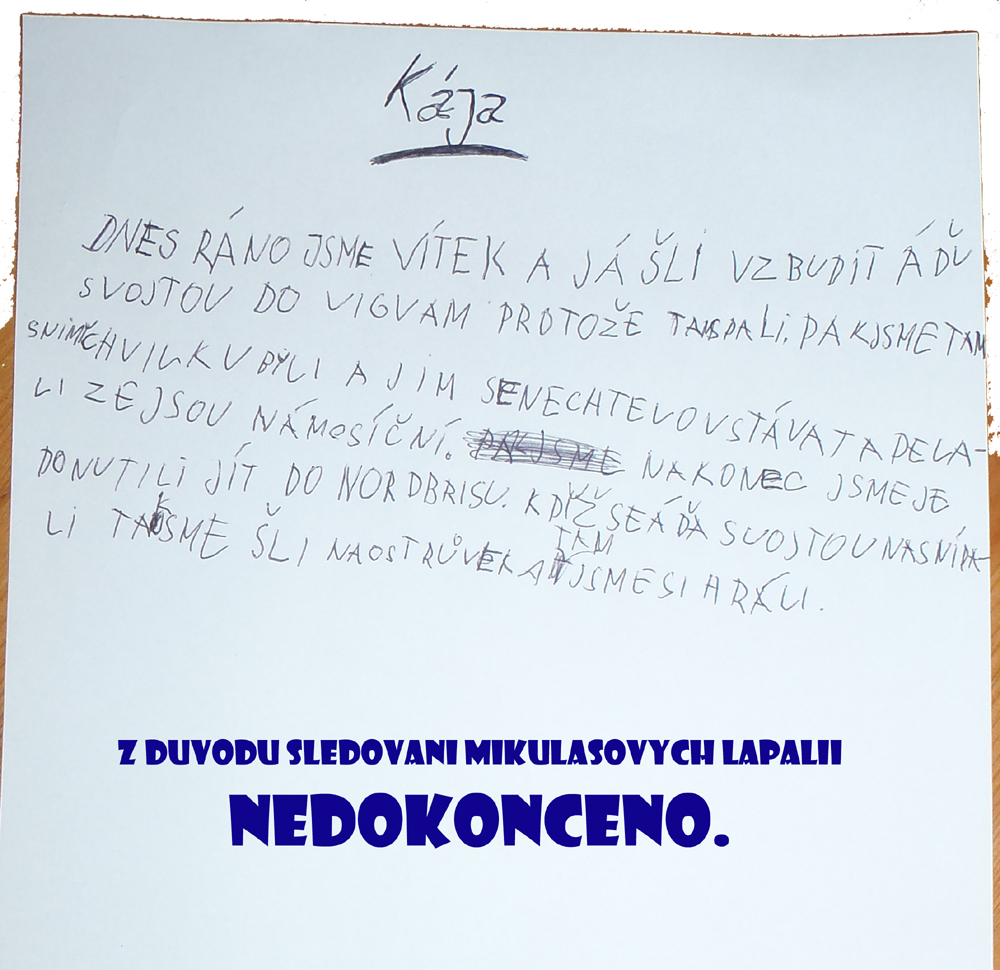 Kája
DNES RÁNO JSME VÍTEK A JÁ ŠLI VZBUDIT ÁĎU
SVOJTOU DO VIGVAM PROTOŽE TAMSPALI. PAKJSME TAM
SNIMICHVILKU BYLI A JIM SENECHTELOVSTÁVAT A DELA-
LI ZEJSOU NÁMOSÍČNÍ. NAKONEC JSMEJE
DONUTILI JÍT DO NORDBRISU. KDYŽ SEÁĎA SVOJTOU NASNÍDA-
LI TAKSME ŠLI NAOSTRŮVEK A TAM JSMESI HRÁLI.
Z DUVODU SLEDOVANI MIKULASOVYCH LAPALII
NEDOKONCENO.